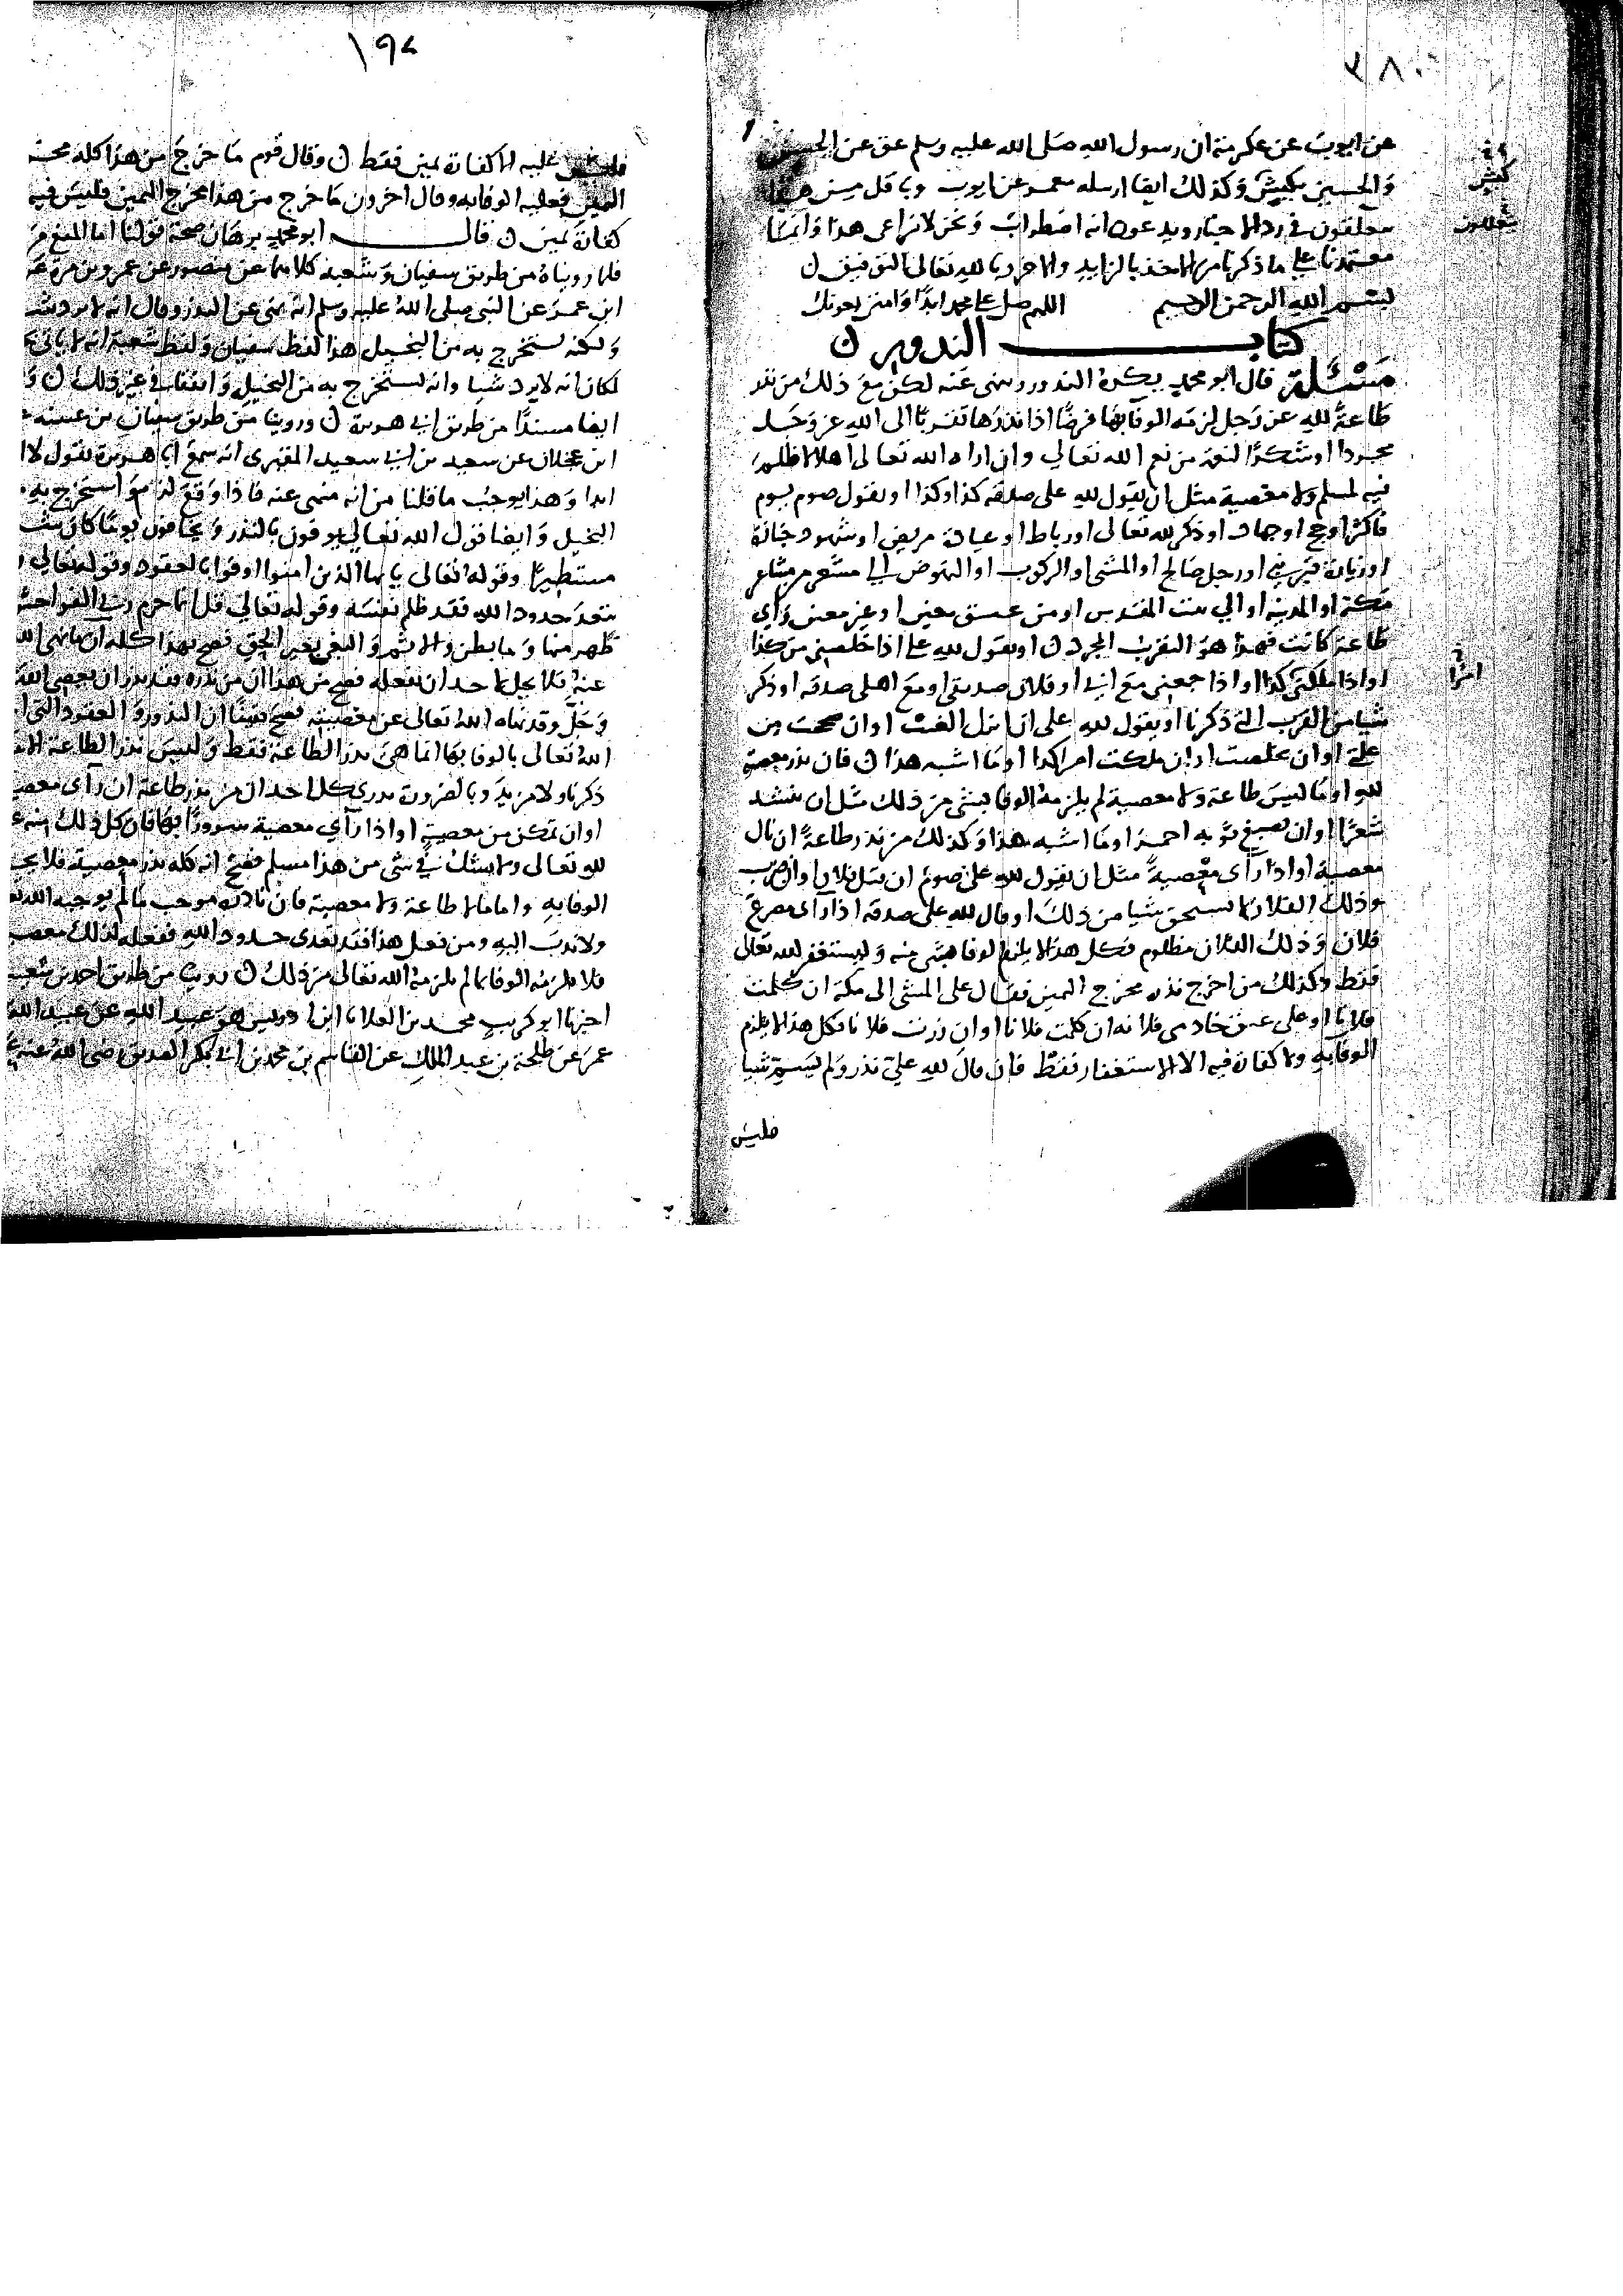 ٣٨٠
عن ايوب عن عكرمة ان رسول الله صلى الله عليه وسلم عق عن الحسن
والحسين بكبشين وكذلك ايضا ارسله معمر عن ايوب وباقل من هذا
يتعلقون في رد الاخبار ويدعون انه اضطراب ونحن لا نراعي هذا وانما
معتمدنا على ما ذكرنا من الاخذ بالزايد والاخر وبالله تعالى التوفيق ن
بسم الله الرحمن الرحيم اللهم صل على محمد ابدا وامنن بعونك
كتاب النذور ن
مسئلة قال ابو محمد يكره النذور وينهى عنه لكن مع ذلك من نذر
طاعة لله عز وجل لزمه الوفا بها فرضا اذا نذرها تقربا الى الله عز وجل
مجردا او شكرا لنعمة من نعم الله تعالى وان اراه الله تعالى املا لا ظلم
فيه لمسلم ولا معصية مثل ان يقول لله علي صدقة كذا وكذا او يقول صوم يوم
فاكثر او حج او جهاد او ذكر لله تعالى او رباط او عيادة مريض او شهود جنازة
او زيارة قبر نبي او رجل صالح او المشي او الركوب او النهوض الى مشعر من مشاعر
مكة او المدينة او الى بيت المقدس او من عتق معين او غير معين واي
طاعة كانت فهذا هو التقرب المجرد ن او يقول لله علي اذا خلصني من كذا
او اذا ملكني كذا او اذا جمعني مع ابي او فلان صديقي او مع اهلي صدقة او ذكر
شيا من القرب التي ذكرنا او يقول لله علي ان انزل الغيث او ان صححت من
علتي او ان تخلصت او ان ملكت امر كذا او ما اشبه هذا ن فان نذر معصية
لله او ما ليس طاعة ولا معصية لم يلزمه الوفا بشي من ذلك مثل ان ينشد
شعرا او ان يصبغ ثوبه احمر او ما اشبه هذا وكذلك من نذر طاعة ان نال
معصية او اذا راى معصية مثل ان يقول لله علي صوم ان قتل فلان او ان ضرب
وذلك الفلان لا يستحق شيا من ذلك او قال لله علي صدقة اذا اراى مصرع
فلان وذلك الفلان مظلوم فكل هذا لا يلزم الوفا بشي منه وليستغفر الله تعالى
فقط وكذلك من اخرج نذره مخرج اليمين فقال علي المشي الى مكة ان كلمت
فلانا او علي عتق خادمي فلانة ان كلمت فلانا او ان زرت فلانا فكل هذا لا يلزم
الوفا به ولا كفارة فيه الا الاستغفار فقط فان قال لله علي نذر ولم يسم شيا
فليس
كبش
يتعللون
امرا
١٩٢
فليس عليه الا كفارة يمين فقط ن وقال قوم ما خرج من هذا كله مخرج
اليمين فعليه الوفا به وقال اخرون ما خرج من هذا مخرج اليمين فليس فيه
كفارة يمين ن قال ابو محمد برهان صحة قولنا اما المنع من
فلما رويناه من طريق سفيان وشعبة كلاهما عن منصور عن عمرو بن مرة عن
ابن عمر عن النبي صلى الله عليه وسلم انه نهى عن النذر وقال انه لا يرد شيا
ولكنه يستخرج به من البخيل هذا لفظ سفيان ولفظ شعبة انه لا ياتي
لكان انه لا يرد شيا وانه يستخرج به من البخيل واتفقا في غير ذلك ن و
ايضا مسندا من طريق ابي هريرة ن وروينا من طريق سفيان بن عيينة
ابن عجلان عن سعيد بن ابي سعيد المقبرى انه سمع ابا هريرة يقول لا ا
ابدا وهذا يوجب ما قلنا من انه منهى عنه فاذا وقع لزم واستخرج به
البخيل وايضا قول الله تعالى يوفون بالنذر ويخافون يوما كان شره
مستطيرا وقوله تعالى يايها الذين امنوا اوفوا بالعقود وقوله تعالى و
يتعد حدود الله فقد ظلم نفسه وقوله تعالى قل انما حرم ربي الفواحش
ظهر منها وما بطن والاثم والبغي بغير الحق فصح بهذا كله ان ما نهى الله
عنه فلا يحل لاحد ان يفعله فصح من هذا ان من نذره فقد نذر ان يعصى الله
وجل وقد نهاه الله تعالى عن معصيته فصح يقينا ان النذور والعقود التي ا
الله تعالى بالوفا بها انما هي نذر الطاعة فقط وليس نذر الطاعة الا ما
ذكرنا ولا مزيد وبالضرورة يدرى كل احد ان من نذر طاعة ان راى معصية
او ان تمكن من معصية او اذا راى معصية سرورا بها فان كل ذلك منه
لله تعالى ولا يشك في شي من هذا مسلم فصح انه كله نذر معصية فلا يحل
الوفا به واما ما لا طاعة ولا معصية فان ناذره موجب ما لم يوجبه الله تعالى
ولا ندب اليه ومن فعل هذا فقد تعدى حدود الله ففعله لذلك معصية
فلا يلزمه الوفا بما لم يلزمه الله تعالى من ذلك ن روينا من طريق احمد بن شعيب
اخبرنا ابو كريب محمد بن العلا نا ابن ادريس هو عبد الله عن عبيد الله
عمر عن طلحة بن عبد الملك عن القاسم بن محمد بن ابي بكر الصديق رضي الله عنه